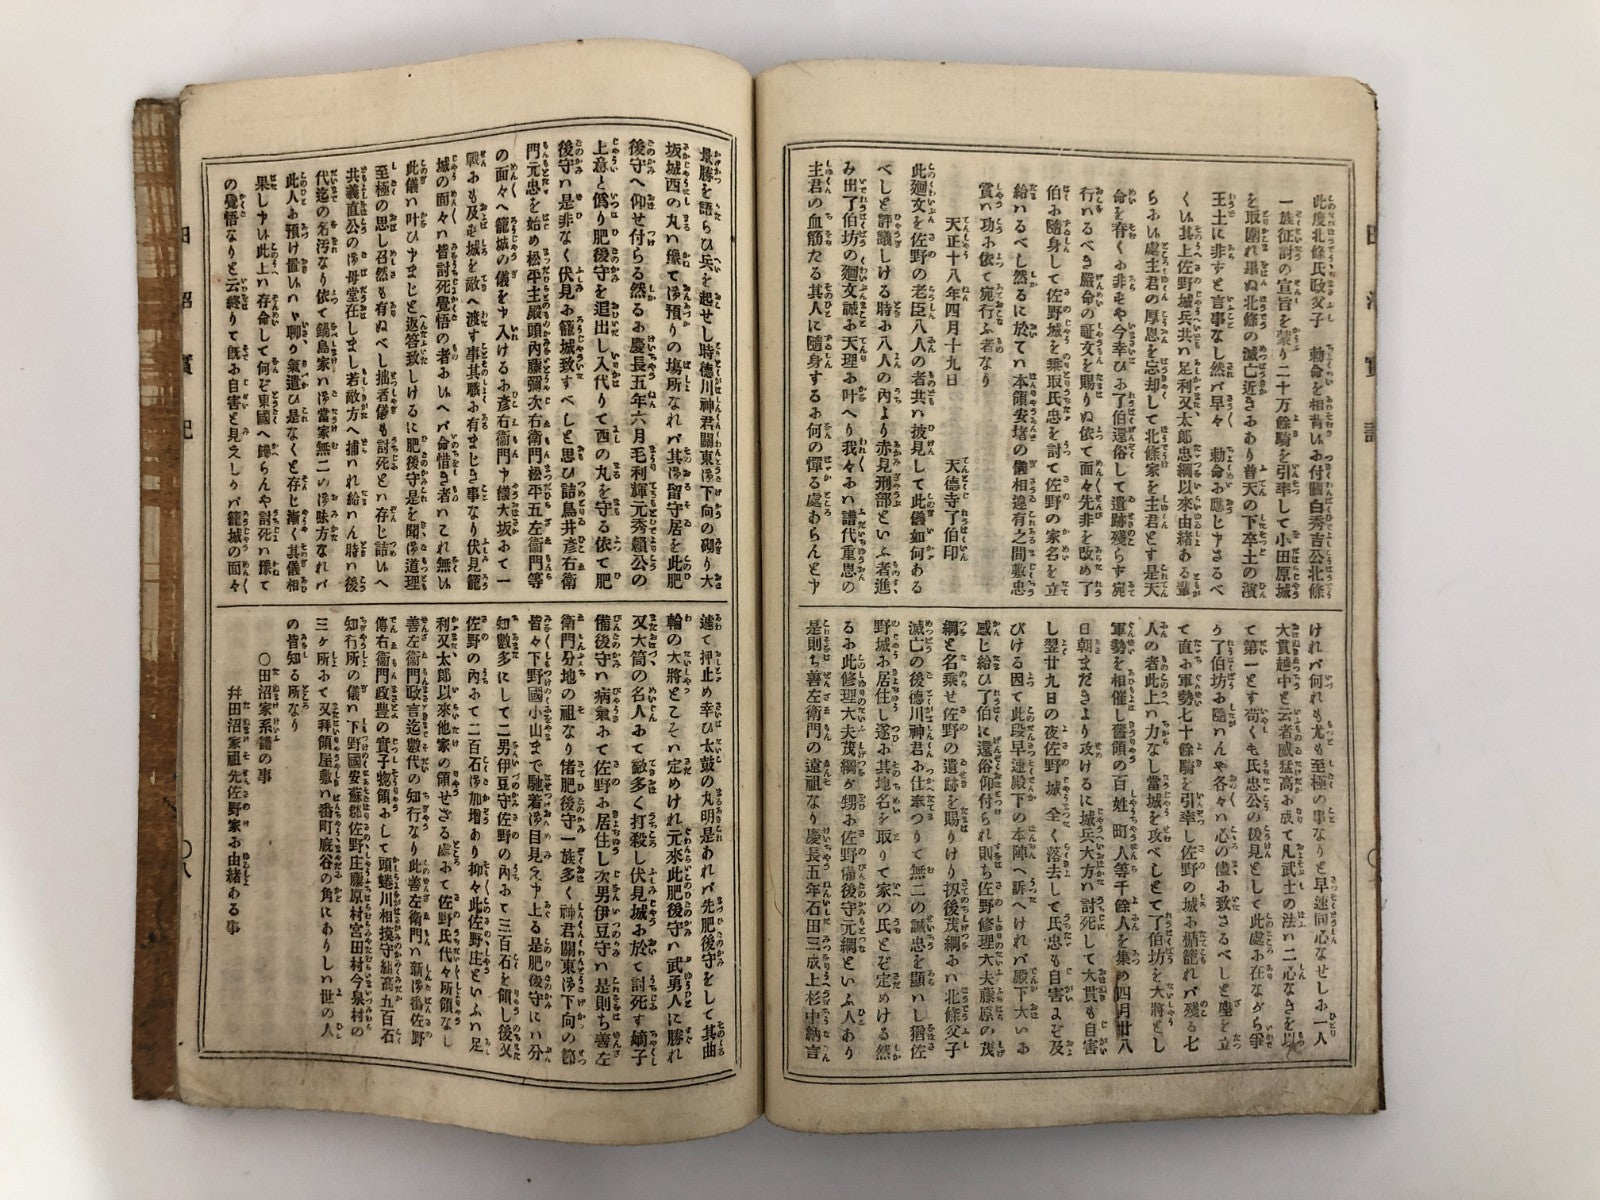 此度北條氏政父子　勅命を相背いお付關白秀吉公北條
一族征討の宣旨を蒙り二十万餘騎を引率して小田原城
を取圍れ畢ぬ北條の滅亡近きあり普天の下卒土の濱
王土に非ずと言事なし然バ早々　勅命お應じ申さるべ
くい其上佐野城兵共ハ足利又太郎忠綱以來由緒ある輩
らおい處主君の厚恩を忘却して北條家を主君とす是天
命を春くお非も今幸ひお了伯還俗して遺跡殘らず宛
行ハるべき嚴命の証文を賜りぬ依て面々先非を改め了
伯お隨身して佐野城を乘取氏忠を討て佐野の家名を立
給ハるべし然るに於てハ本領安堵の儀相違有之間敷忠
賞ハ功お依て宛行ふ者なり
天正十八年四月十九日　　天德寺了伯印
此廻文を佐野の老臣八人の者共ハ披見して此儀如何ある
べしと評議しける時お八人の內より赤見刑部といふ者進
み出了伯坊の廻文誠お天理お叶へり我々おハ譜代重恩の
主君の血筋たる其人に隨身するお何の憚る處あらんと申
けれバ何れも尤も至極の事なりと早速同心なせしお一人
大貫越中と云者威猛高お成て凡武士の法ハ二心なきを以
て第一とす苟くも氏忠公の後見として此處お在ながら爭
う了伯坊お隨ハんや各々ハ心の儘お致さるべしと座を立
て直お軍勢七十餘騎を引率し佐野の城お楯籠れバ殘る七
人の者此上ハ力なし當城を攻べしとて了伯坊を大將とし
軍勢を相催し舊領の百姓町人等千餘人を集め四月廿八
日朝まだきより攻けるに城兵大方ハ討死して大貫も自害
し翌廿九日の夜佐野城全く落去して氏忠も自害よぞ及
びける因て此段早速殿下の本陣へ訴へけれバ殿下大いお
感じ給ひ了伯に還俗仰付られ則ち佐野修理大夫藤原の茂
綱と名乘せ佐野の遺跡を賜りけり扨後茂綱おハ北條父子
滅亡の後德川神君お仕奉つりて無二の誠忠を顯ハし猶佐
野城お居住し遂お其地名を取りて家の氏とぞ定めける然
るお此修理大夫茂綱が甥お佐野備後守元綱といふ人あり
是則ち善左衞門の遠祖なり慶長五年石田三成上杉中納言
景勝を語らひ兵を起せし時德川神君關東御下向の砌り大
坂城西の丸ハ豫て御預りの場所なれバ其御留守居を此肥
後守へ仰せ付らる然るお慶長五年六月毛利輝元秀賴公の
上意と僞り肥後守を追出し入代りて西の丸を守る依て肥
後守ハ是非なく伏見お籠城致すべしと思ひ詰鳥井彥右衞
門元忠を始め松平主殿頭內藤彌次右衞門松平五左衞門等
の面々へ籠城の儀を申入けるお彥右衞門申儀大坂おて一
戰おも及ば城を敵へ渡す事其職お有まじき事なり伏見籠
城の面々ハ皆討死覺悟の者おいへバ命惜き者ハこれ無い
此儀ハ叶ひ申まじと返答致しけるに肥後守是を聞御道理
至極の思し召然も有ぬべし拙者儀も討死と存じ詰いへ
共義直公の御母堂在しまし若敵方へ捕ハれ給ハん時ハ後
代迄の名汚なり依て鍋島家ハ御當家無二の御味方なれバ
此人お預け置いハ聊り氣遣ひ是なくと存じ漸く其儀相
果し申い此上ハ存命して何ぞ東國へ歸らんや討死ハ豫て
の覺悟なりと云終りて旣お自害と見えしりバ籠城の面々
遽て押止め幸ひ太鼓の丸明是あれバ先肥後守をして其曲
輪の大將とこそハ定めけれ元來此肥後守ハ武勇人に勝れ
又大筒の名人おて敵多く打殺し伏見城お於て討死す嫡子
備後守ハ病氣おて佐野お居住し次男伊豆守ハ是則ち善左
衞門分地の祖なり偖肥後守一族多く神君關東御下向の節
皆々下野國小山まで馳着御目見え申上る是肥後守にハ分
知數多にして二男伊豆守佐野の內おて三百石を領し後又
佐野の內おて二百石御加增あり抑々此佐野庄といふハ足
利又太郞以來他家の領せざる處おて佐野氏代々所領なし
善左衞門政言迄數代の知行なり此善左衞門ハ新御番佐野
傳右衞門政豊の實子惣領おして頭蜷川相摸守組高五百石
知行所の儀ハ下野國安蘇郡佐野庄藤原村宮田村今泉村の
三ヶ所おて又拜領屋敷ハ番町廐谷の角にありしハ世の人
の皆知る所なり
〇田沼家系譜の事
幷田沼家祖先佐野家お由緖ある事
田沼實記
〇八